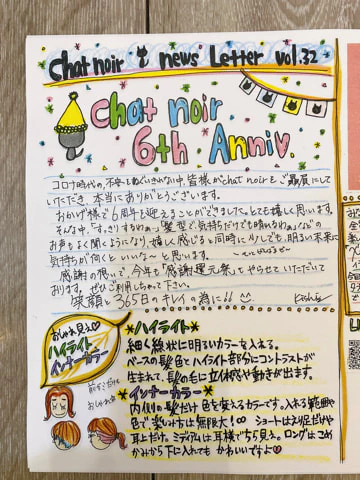 Chat noir news Letter vol.32
Chat noir
6th Anniv.
コロナ時代の、不安をぬぐいきれない中、皆様がchat noirをご贔屓にして
いただき、本当にありがとうございます。
おかげ様で6周年を迎えることができました。とても嬉しく思います。
そんな中、"すっきりするわぁ…髪型で気持ちだけでも晴れるわぁ"などの
お声もよく聞くようになり、嬉しく感じると同時に少しでも、明るい未来に
気持ちが向くといいな〜と思います。
感謝の想いで、今年も「感謝還元祭」をやらせていただいて
おります。ぜひご利用しちゃって下さい。
笑顔と365日のキレイの為に!!
おしゃれ見え
ハイライト
インナーカラー
*ハイライト*
細く線状に明るいカラーを入れる。
ベースの髪色とハイライト部分にコントラストが
生まれて、髪の毛に立体感や動きが出ます。
*インナーカラー*
内側の髪だけ色を変えるカラーです。入れる範囲や
色で、楽しみ方は無限大!∞ ショートはえり足だけや
耳上だけ。ミディアムは耳横でちら見え。ロングはこめ
かみから下に入れてもかわいいですよ♡